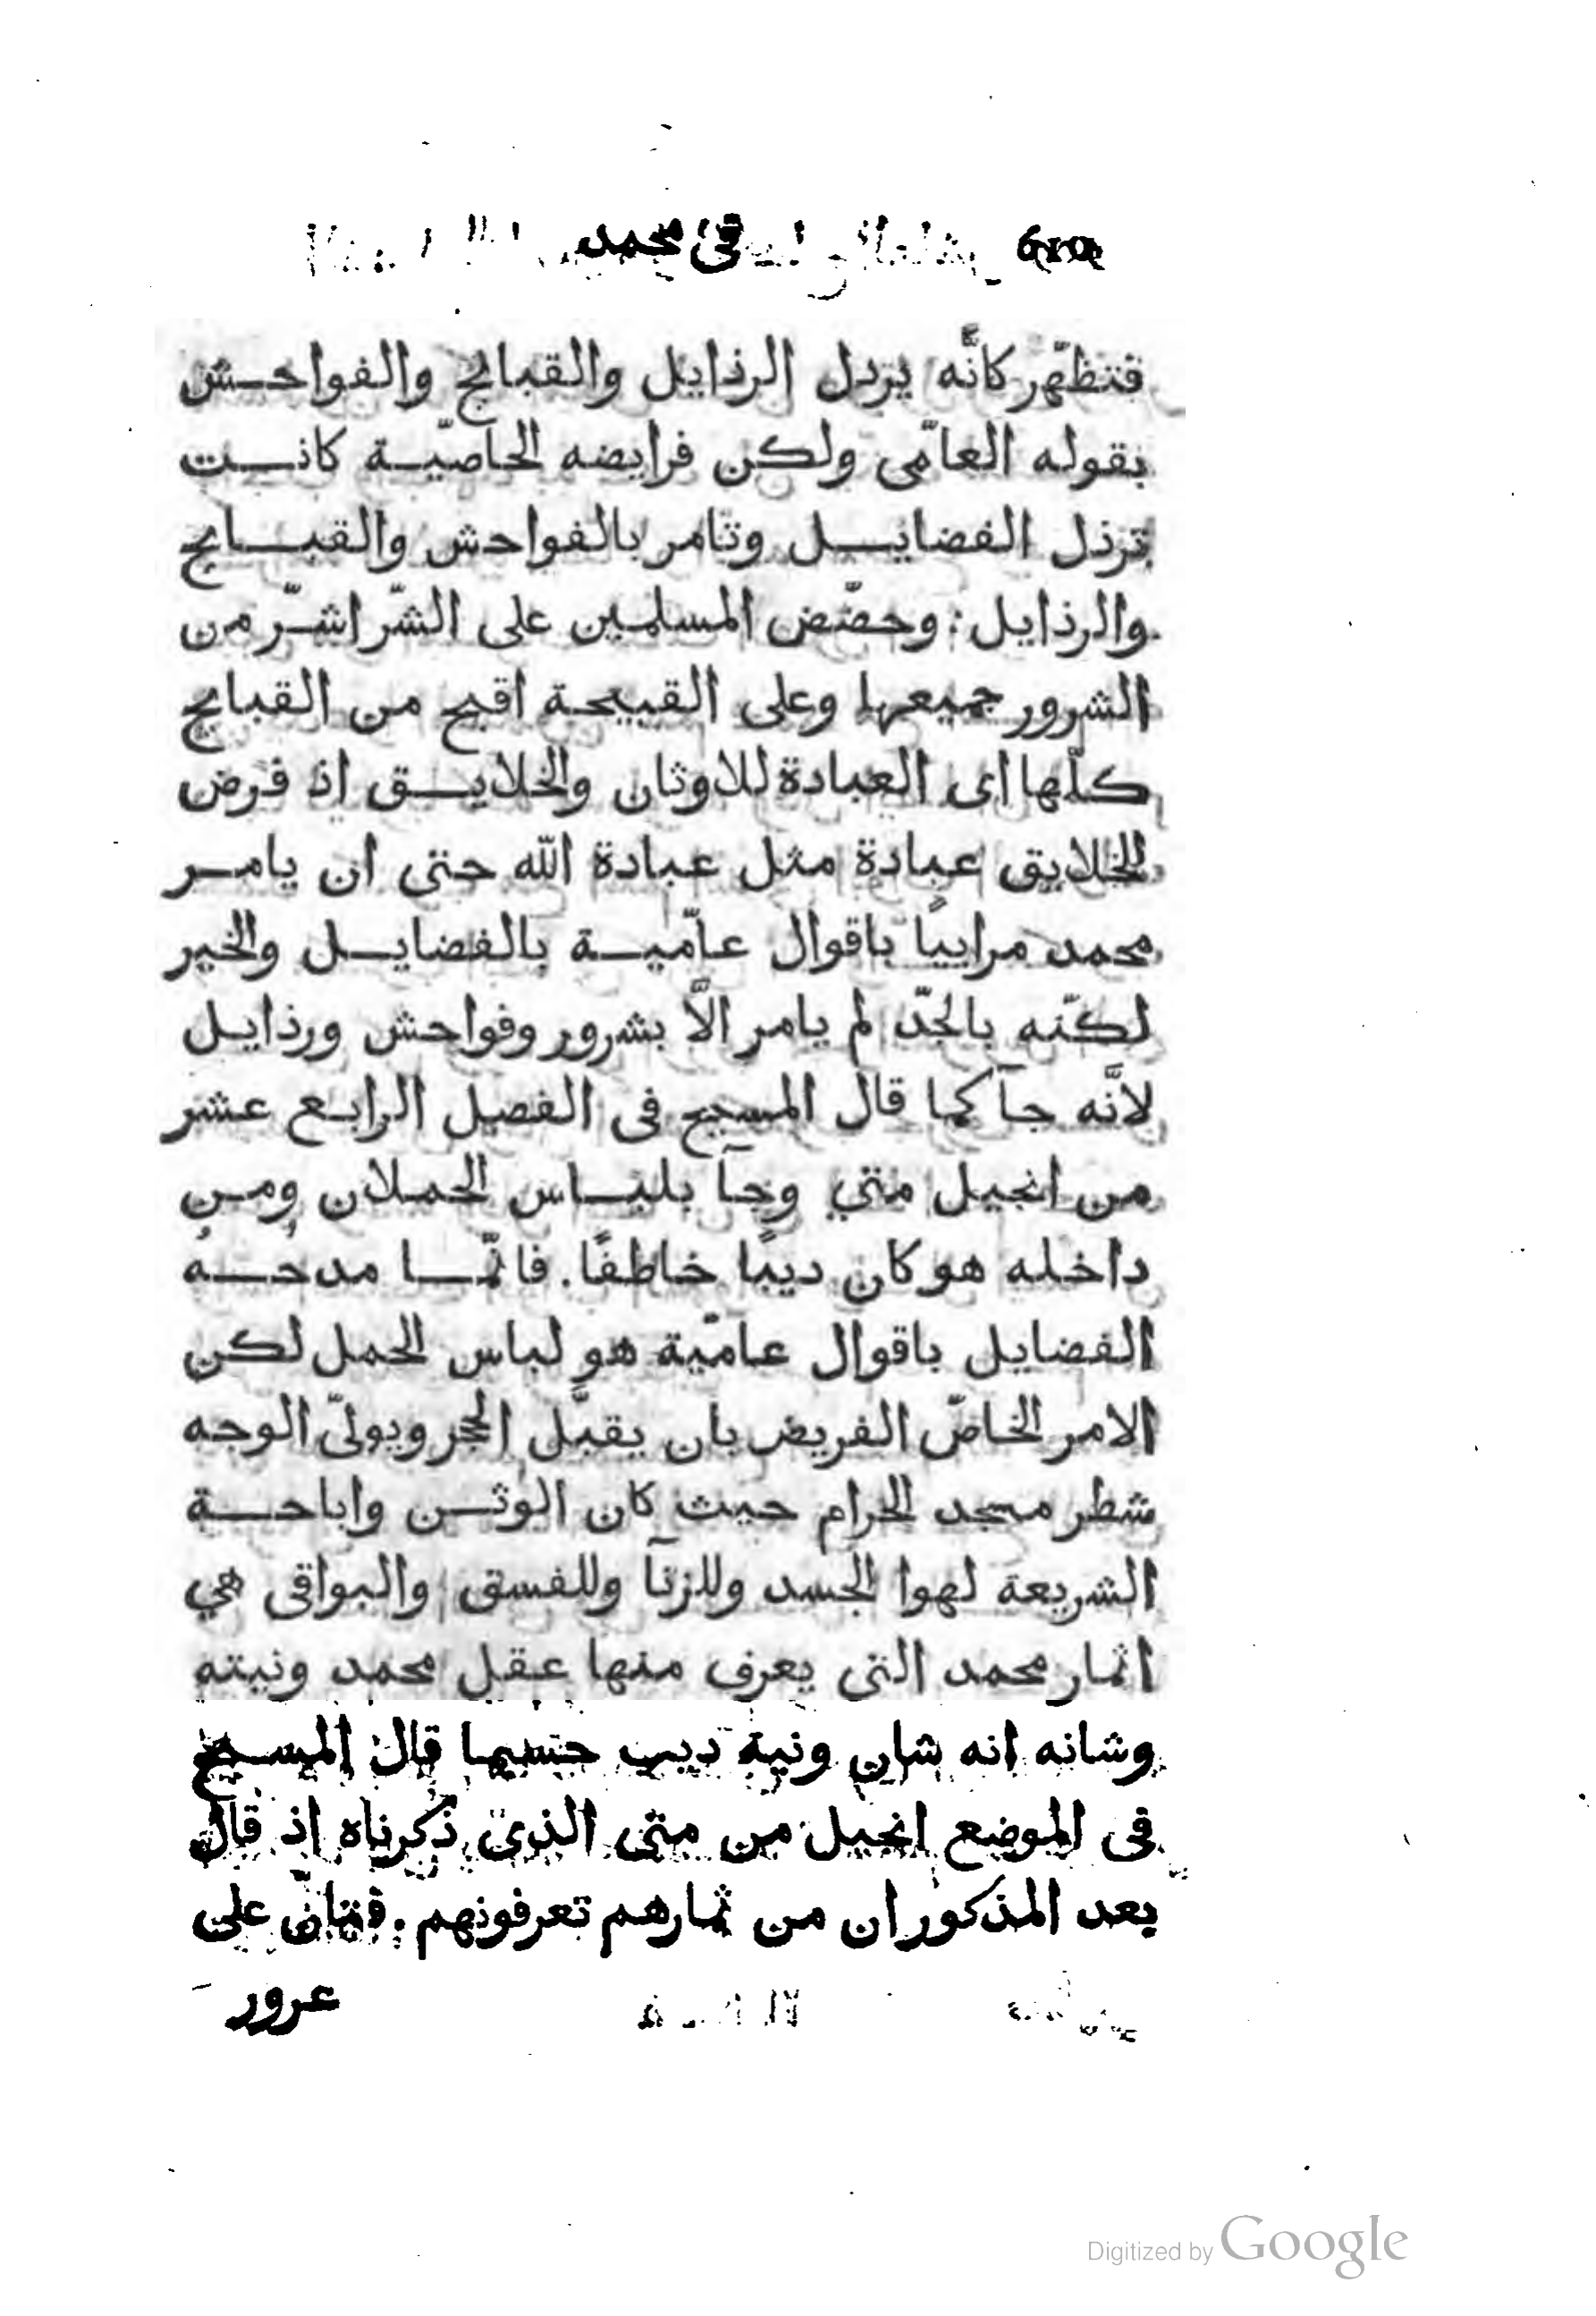 في محمد
فتظهّر كانّه يردل الرذايل والقبايح والفواحش
بقوله العامّى ولكن فرايضه الخاصّية كانت
ترذل الفضايل وتامر بالفواحش والقبايح
والرذايل: وحضّض المسلمين على الشرّ اشرّ من
الشرور جميعها وعلى القبيحة اقبح من القبايح
كلّها اى العبادة للاوثان والخلايق اذ فرض
للخلايق عبادةً مثل عبادة الله حتى ان يامر
محمد مراييًا باقوال عامّية بالفضايل والخير
لكنّه بالجدّ لم يامر الاّ بشرور وفواحش ورذايل
لانّه جآ كما قال المسيح فى الفصل الرابع عشر
من انجيل متى وجآ بلباس الحملان ومن
داخله هو كان ديبًا خاطفًا. فانّما مدحه
الفضايل باقوال عاميّة هو لباس الحمل لكن
الامر الخاصّ الفريض بان يقبّل الحجر ويولىّ الوجه
شطر مسجد الحرام حيث كان الوثن واباحة
الشريعة لهوا الجسد وللزنآ وللفسق والبواقى هي
اثمار محمد التى يعرف منها عقل محمد ونيته
وشانه انه شان ونية ديب حسبما قال المسيح
فى الموضع انجيل من متى الذى ذكرناه اذ قال
بعد المذكور ان من ثمارهم تعرفونهم. على
عرور
Digitized by Google